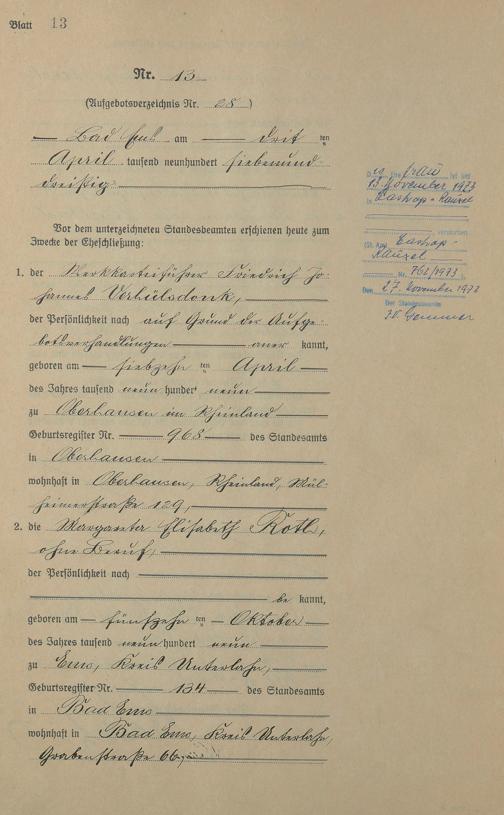 Blatt 13
Nr. 13
(Aufgebotsverzeichnis Nr. 28)
Bad Ems am drit ten
April tausend neunhundert siebenund-
dreißig
Vor dem unterzeichneten Standesbeamten erschienen heute zum
Zwecke der Eheschließung:
1. der Werkkarteiführer Friedrich Jo-
hannes Verhülsdonk,
der Persönlichkeit nach auf Grund der Aufge-
botsverhandlungen aner kannt,
geboren am siebzehn ten April
des Jahres tausend neun hundert neun
zu Oberhausen im Rheinland
Geburtsregister Nr. 968 des Standesamts
in Oberhausen
wohnhaft in Oberhausen, Rheinland, Mül-
heimerstraße 129,
2. die Margareta Elisabeth Roth,
ohne Beruf,
der Persönlichkeit nach
be kannt,
geboren am fünfzehn ten Oktober
des Jahres tausend neun hundert neun
zu Ems, Kreis Unterlahn,
Geburtsregister Nr. 134 des Standesamts
in Bad Ems
wohnhaft in Bad Ems, Kreis Unterlahn,
Grabenstraße 66,
Frau ist am
13. November 1973
in Castrop-Rauxel
verstorben
(St. Amt Castrop-
Rauxel
Nr. 762/1973)
Den 27. November 1973
Der Standesbeamte